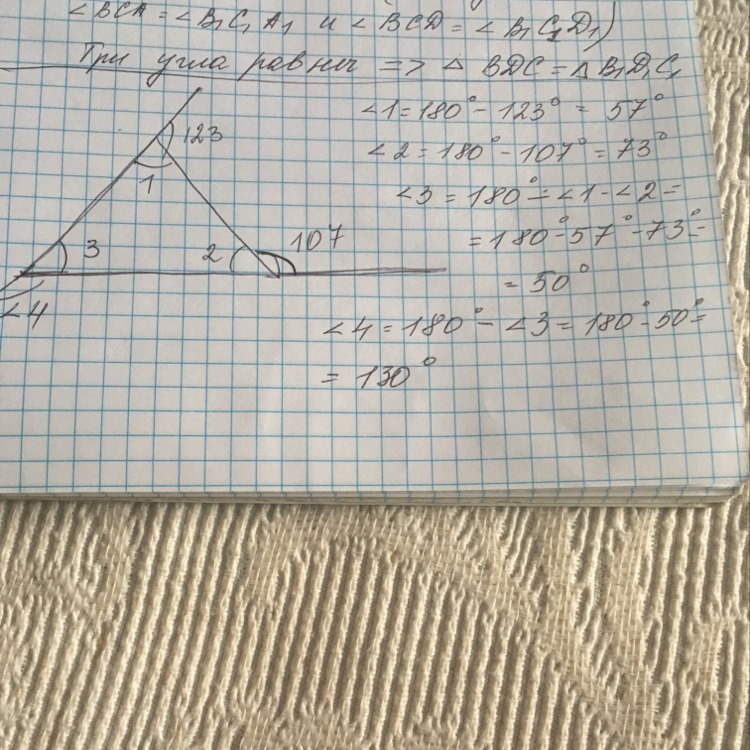 ∠BCA = ∠B₁C₁A₁ и ∠BCD = ∠B₁C₁D₁)
Три угла равны => △ BDC = △ B₁D₁C₁
123
1
3
2
107
∠4
∠1 = 180° - 123° = 57°
∠2 = 180° - 107° = 73°
∠3 = 180° - ∠1 - ∠2 =
= 180° - 57° - 73° =
= 50°
∠4 = 180° - ∠3 = 180° - 50° =
= 130°